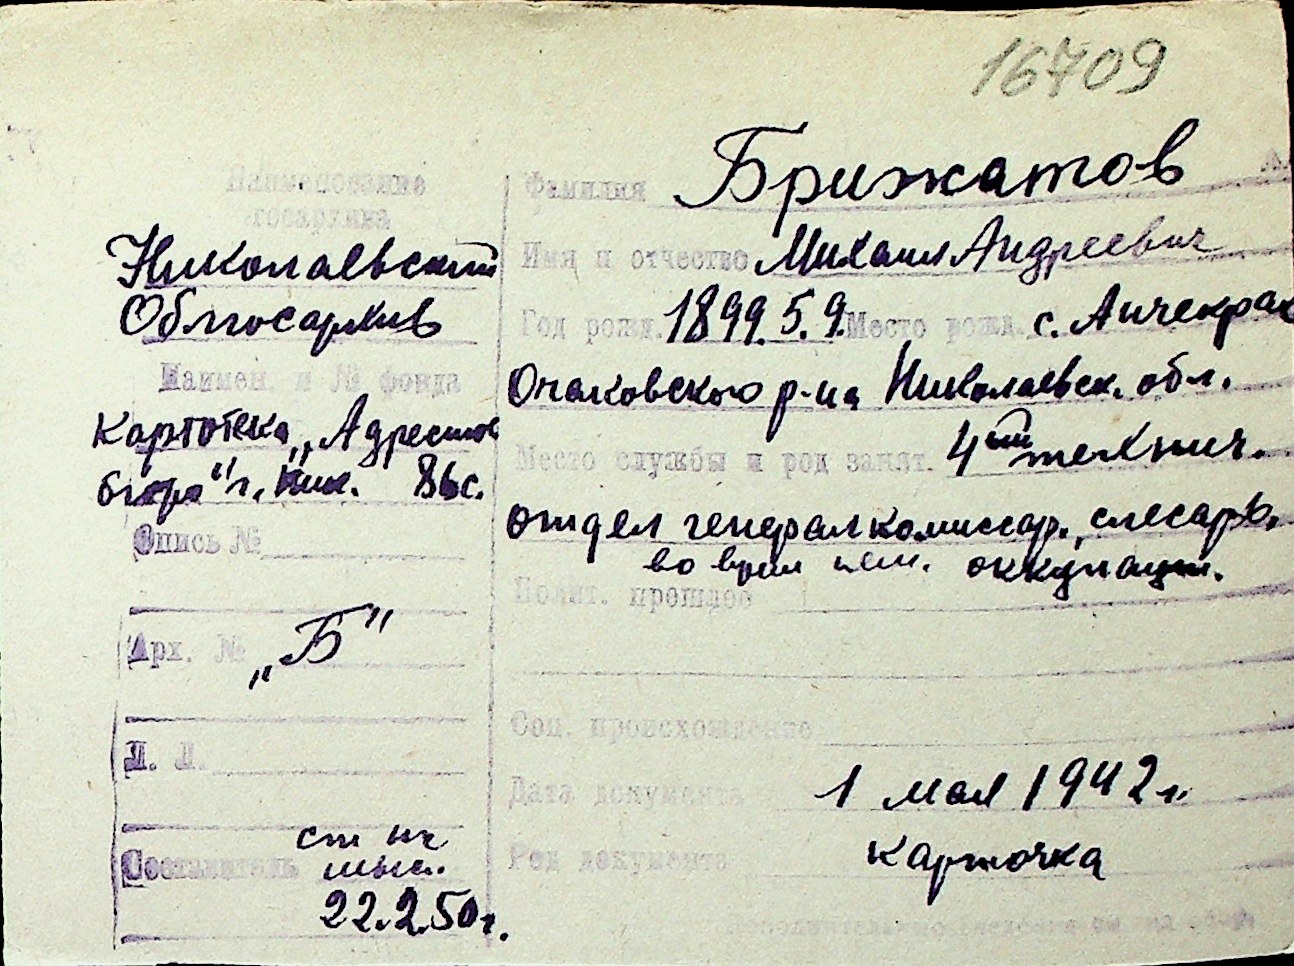 16709
Наименование
госархива
Николаевский
Облгосархив
Наимен. и № фонда
Картотека „Адресного
бюро" г. Ник. 86с.
Опись №
Арх. № „Б"
Л. Л.
Составитель ст нс
22.2.50г.
Фамилия Брижатов
Имя и отчество Михаил Андреевич
Год рожд. 1899.5.9. Место рожд. с. Анчекрак
Очаковского р-на Николаевск. обл.
Место службы и род занят. 4ый технич.
отдел генералкомиссар. слесарь.
во врем нем. оккупации.
Полит. прошлое
Соц. происхождение
Дата документа 1 мая 1942 г.
Род документа карточка